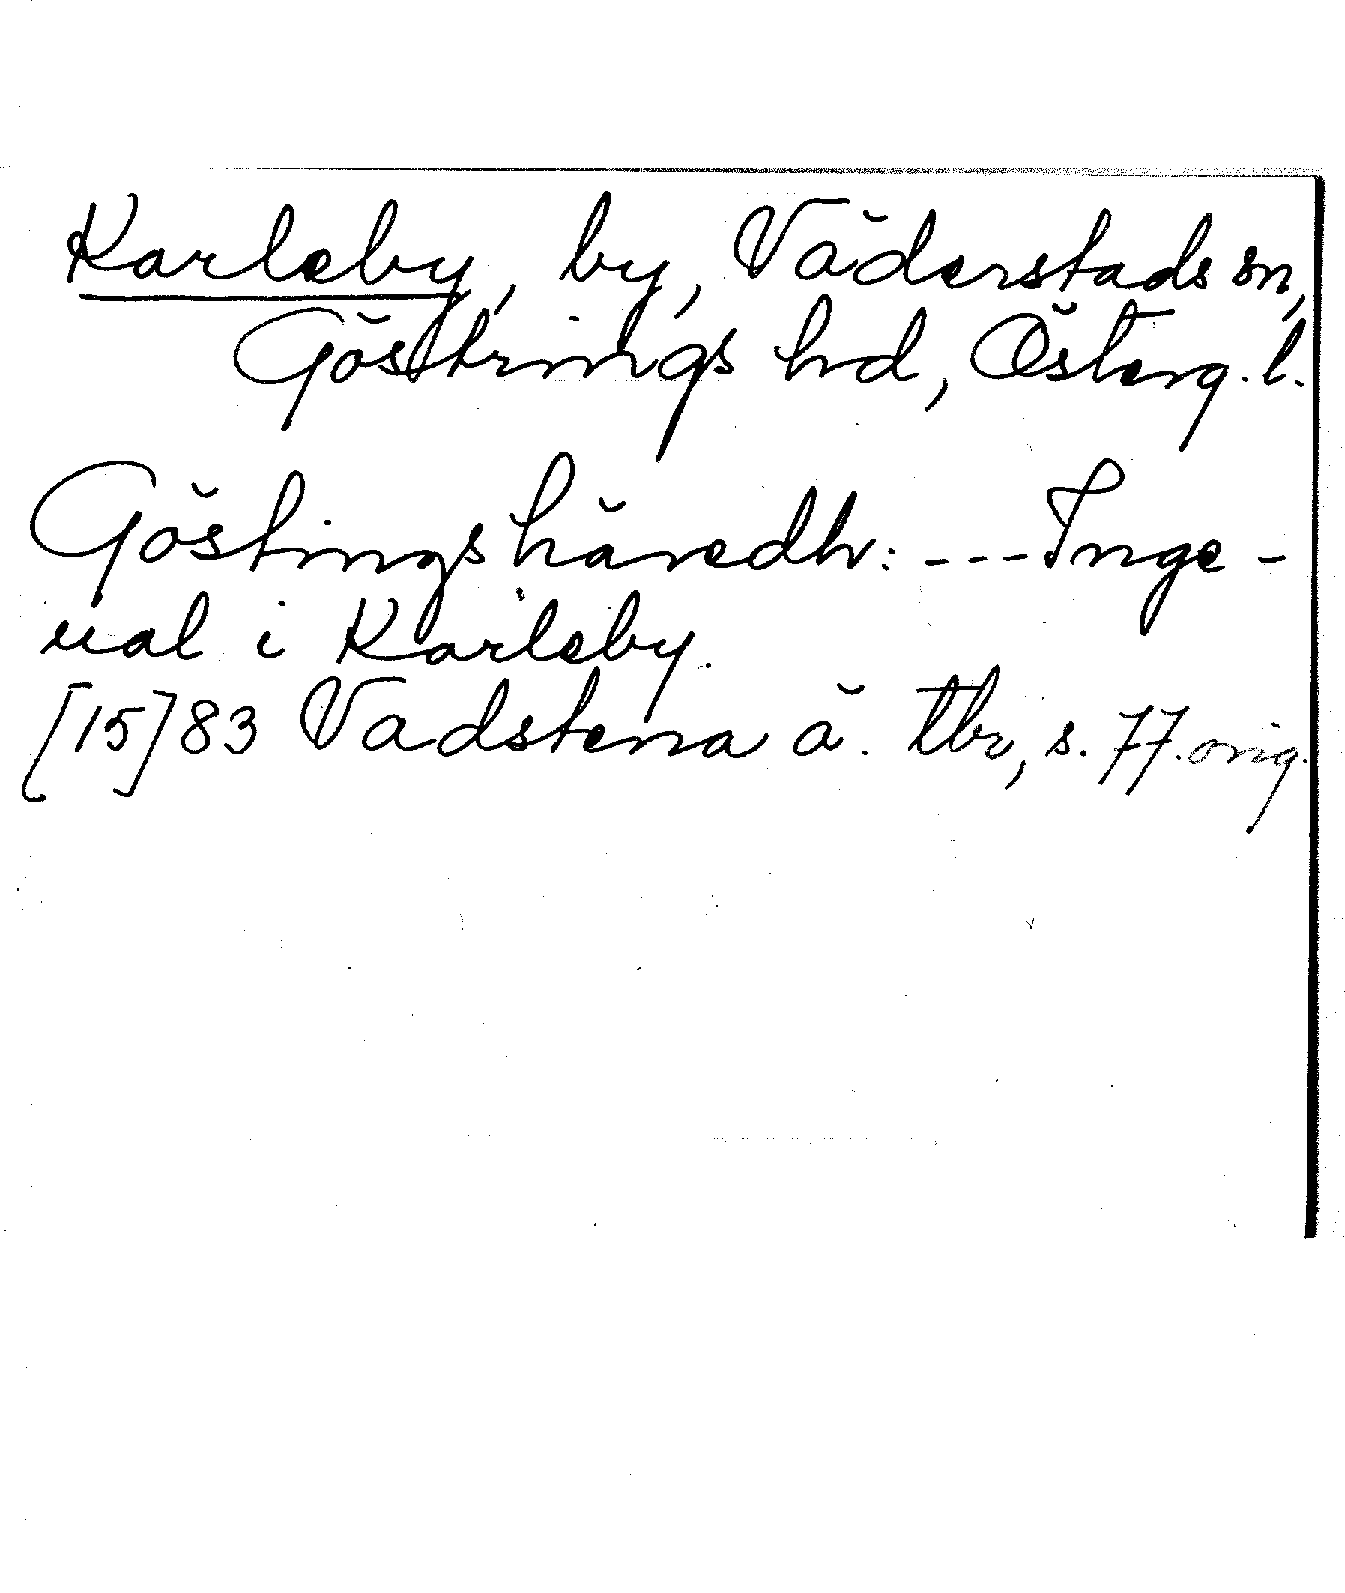 Karleby, by, Väderstads sn,
Göstrings hrd, Österg. l.
Göstings häredh: --- Inge-
ual i Karleby.
[15]83 Vadstena ä. tbr, s. 77. orig.